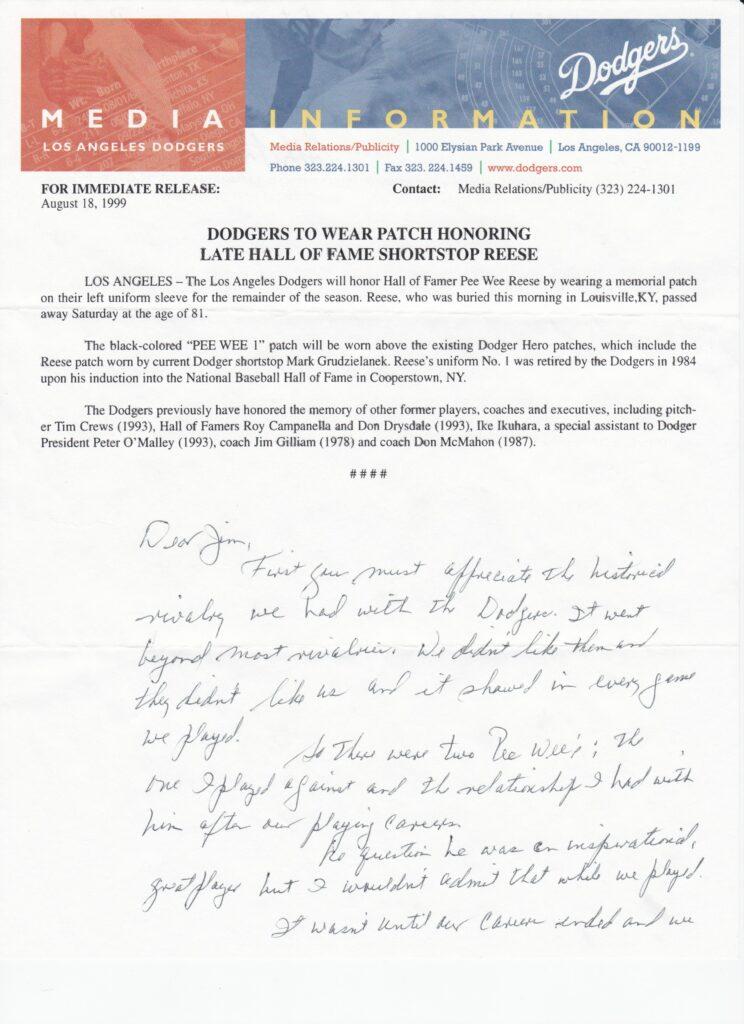 Dodgers
MEDIA INFORMATION
LOS ANGELES DODGERS
Media Relations/Publicity | 1000 Elysian Park Avenue | Los Angeles, CA 90012-1199
Phone 323.224.1301 | Fax 323. 224.1459 | www.dodgers.com
FOR IMMEDIATE RELEASE:
Contact: Media Relations/Publicity (323) 224-1301
August 18, 1999
DODGERS TO WEAR PATCH HONORING
LATE HALL OF FAME SHORTSTOP REESE
LOS ANGELES – The Los Angeles Dodgers will honor Hall of Famer Pee Wee Reese by wearing a memorial patch
on their left uniform sleeve for the remainder of the season. Reese, who was buried this morning in Louisville,KY, passed
away Saturday at the age of 81.
The black-colored “PEE WEE 1” patch will be worn above the existing Dodger Hero patches, which include the
Reese patch worn by current Dodger shortstop Mark Grudzielanek. Reese’s uniform No. 1 was retired by the Dodgers in 1984
upon his induction into the National Baseball Hall of Fame in Cooperstown, NY.
The Dodgers previously have honored the memory of other former players, coaches and executives, including pitch-
er Tim Crews (1993), Hall of Famers Roy Campanella and Don Drysdale (1993), Ike Ikuhara, a special assistant to Dodger
President Peter O’Malley (1993), coach Jim Gilliam (1978) and coach Don McMahon (1987).
####
Dear Jim,
First you must appreciate the historical
rivalry we had with the Dodgers. It went
beyond most rivalries. We didn't like them and
they didn't like us and it showed in every game
we played.
So there were two Pee Wee's; the
one I played against and the relationship I had with
him after our playing careers.
No question he was an inspirational,
great player but I wouldn't admit that while we played.
It wasn't until our careers ended and we